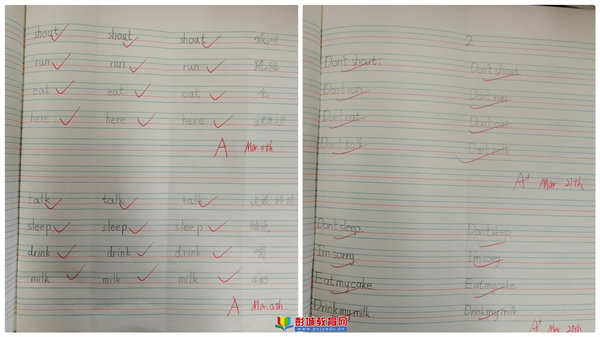 shout shout shout
run run run 跑
eat eat eat 吃
here here here
A Mar. 11th
talk talk talk
sleep sleep sleep 睡觉
drink drink drink 喝
milk milk milk 牛奶
A Mar. 15th.
2
Don't shout. Don't shout.
Don't run. Don't run.
Don't eat. Don't eat.
Don't talk. Don't talk
A+ Mar 21th
Don't sleep. Don't sleep
I'm sorry. I'm sorry.
Eat my cake. Eat my cake.
Drink my milk Drink my milk
A+ Mar 28th
彭城教育网
www.pcjyedu.cn